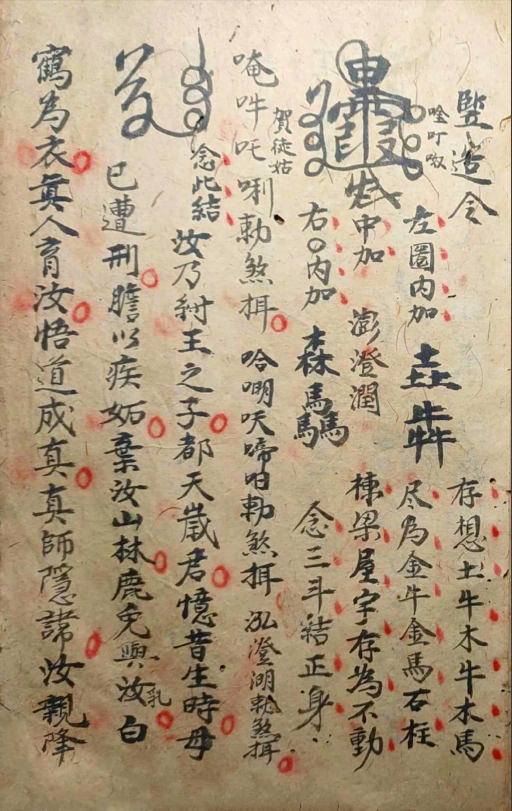 豎造令
唵吽呶
左圈内加 垚犇
存想土牛木牛木馬
尽為金牛金馬石柱
中加 澎澄潤
棟梁屋宇存為不動
右○内加 森驫
念三斗結正身
賀徒姑
唵吽吒唎勅煞摄
哈唎吠啼咱勅煞摄
泓澄渊勅煞摄
念此結
汝乃紂王之子都天歲君憶昔生時毋
已遭刑膽以疾妬棄汝山林鹿兔與汝乳白
鶴為衣真人育汝悟道成真真師隱諱汝親降